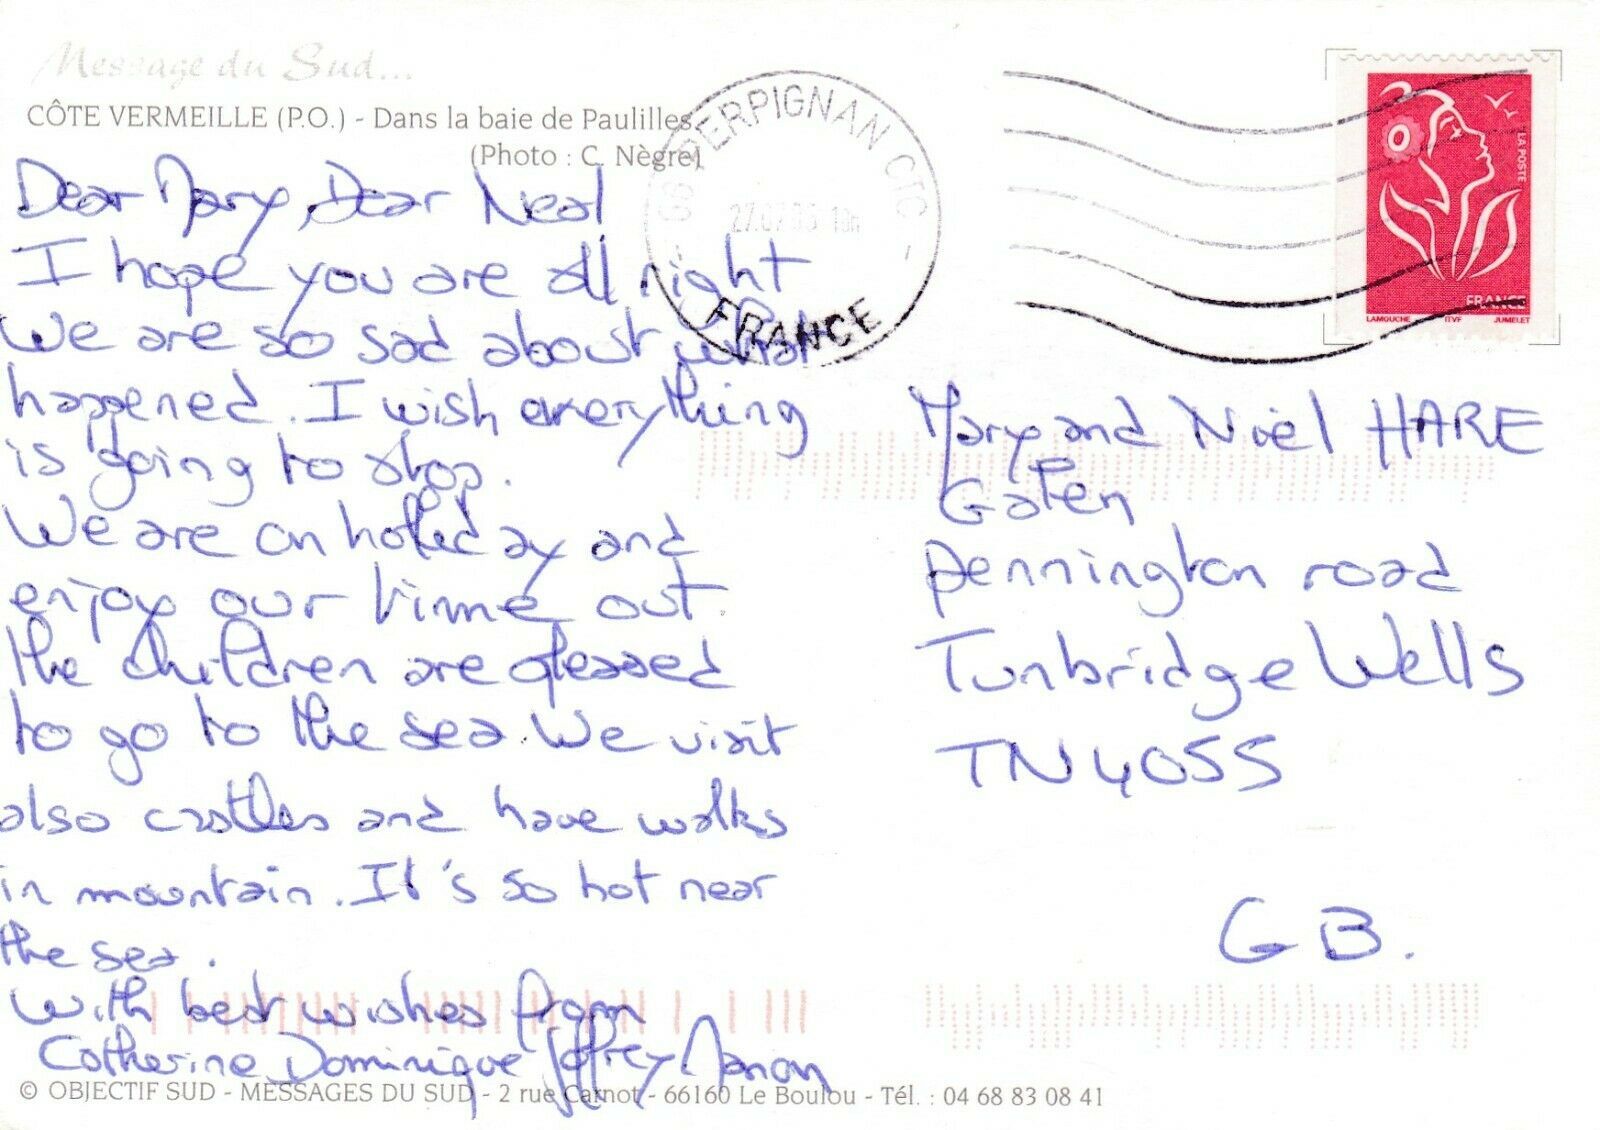 Message du Sud...
CÔTE VERMEILLE (P.O.) - Dans la baie de Paulilles.
(Photo : C. Nègre)
Dear Mary, Dear Neal
I hope you are all right
We are so sad about what
happened. I wish everything
is going to stop.
We are on holliday and
enjoy our time out.
the children are pleased
to go to the sea. We visit
also castles and have walks
in mountain. It's so hot near
the sea.
With best wishes from
Catherine Dominique Joffrey Manon
© OBJECTIF SUD - MESSAGES DU SUD - 2 rue Carnot - 66160 Le Boulou - Tél. : 04 68 83 08 41
66 PERPIGNAN CTC
FRANCE
LA POSTE
FRANCE
LAMOUCHE ITVF JUMELET
Mary and Niel HARE
Pennington road
Tunbridge Wells
TN4 0SS
GB.